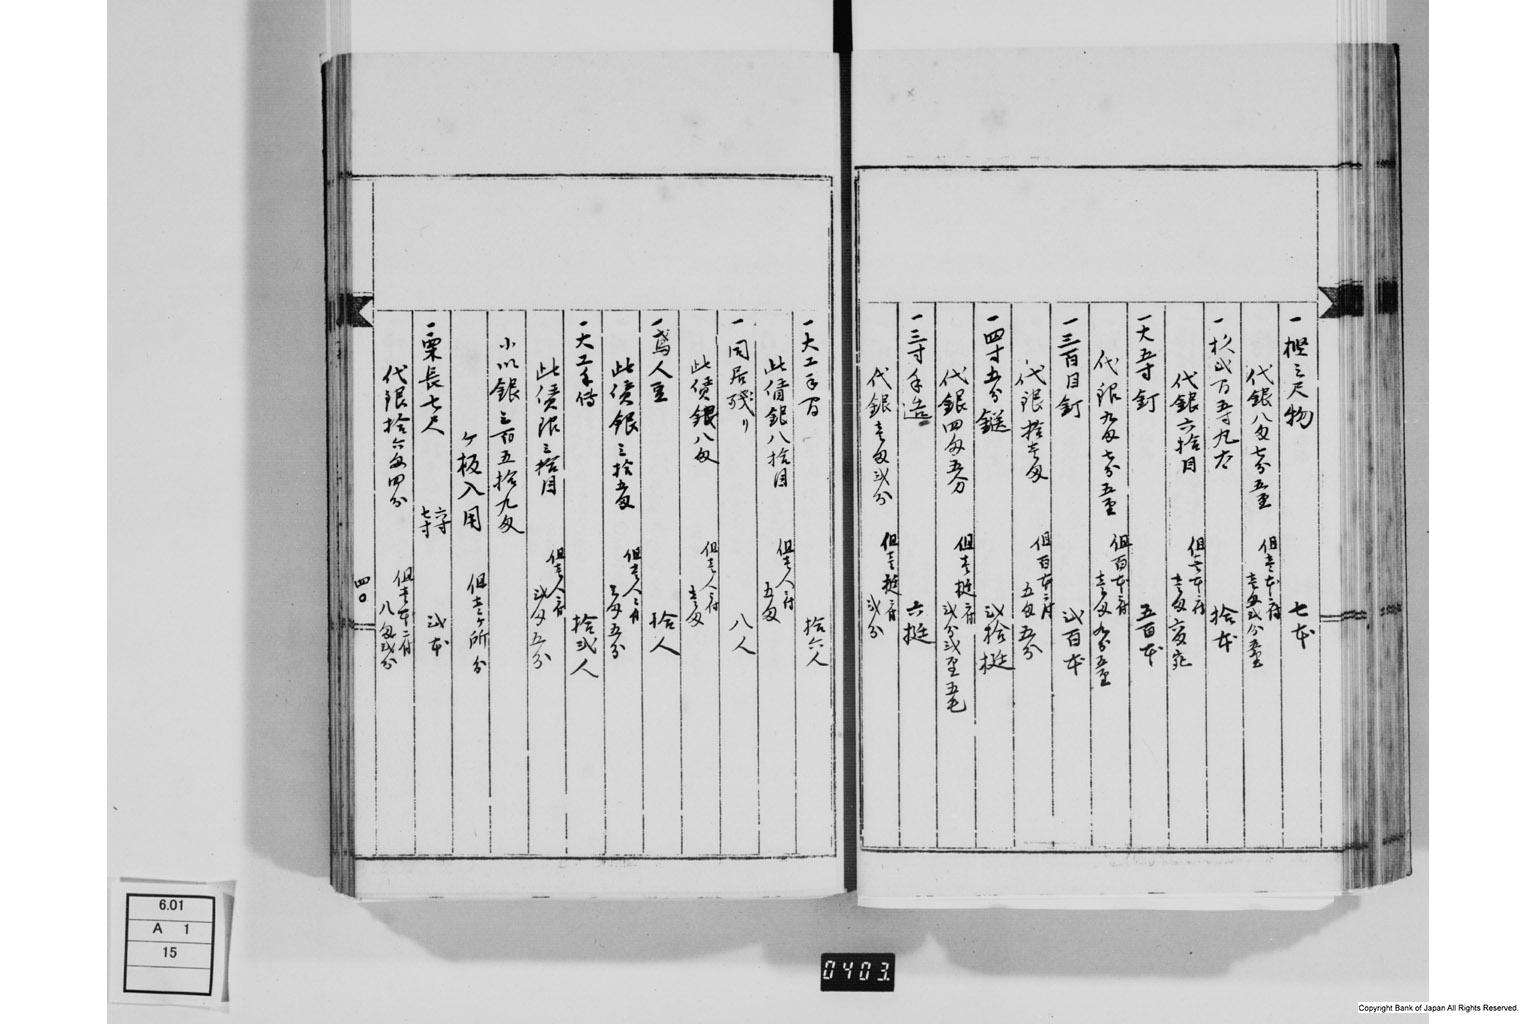 一樫三尺物 七本
代銀八匁七分五厘 但壱本ニ付壱匁弐分五厘
一杉弐間五寸丸太 拾本
代銀六拾目 但壱本ニ付
一大五寸釘 五百本
代銀九匁七分五厘 但百本ニ付壱匁九分五厘
一三百目釘 弐百本
代銀拾壱匁 但百本ニ付五匁五分
一四寸五分鎹 弐拾挺
代銀四匁五分 但壱挺ニ付弐分弐厘五毛
一三寸手違 六挺
代銀壱匁弐分 但壱挺ニ付弐分
一大工手間 拾六人
此賃銀八拾目 但壱人ニ付五匁
一同居残り 八人
此賃銀八匁 但壱人ニ付壱匁
一鳶人足 拾人
此賃銀三拾五匁 但壱人ニ付三匁五分
一大工手伝 拾弐人
此賃銀三拾目 但壱人ニ付弐匁五分
小以銀三百五拾九匁
ケ板入用 但壱ヶ所分
一栗長七尺 六寸七寸 弐本
代銀拾六匁四分 但壱本ニ付八匁弐分
四〇
6.01
A 1
15
0403.
Copyright Bank of Japan All Rights Reserved.